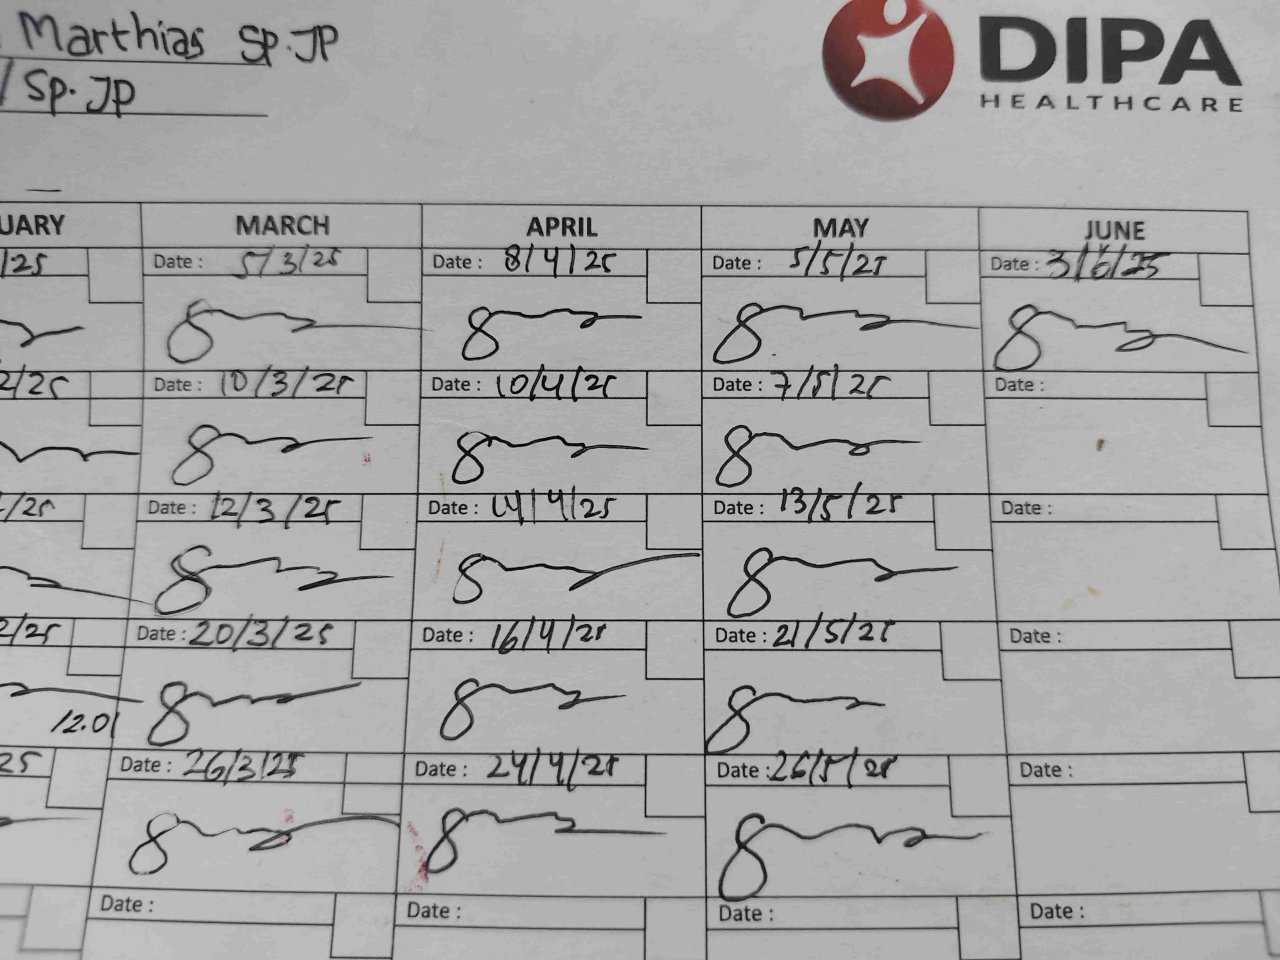 Marthias Sp.JP
/ Sp.JP
DIPA
HEALTHCARE
UARY MARCH APRIL MAY JUNE
/25 Date : 5/3/25 Date : 8/4/25 Date : 5/5/25 Date : 3/6/25
2/25 Date : 10/3/25 Date : 10/4/25 Date : 7/5/25 Date :
/25 Date : 12/3/25 Date : 14/4/25 Date : 13/5/25 Date :
2/25 Date : 20/3/25 Date : 16/4/25 Date : 21/5/25 Date :
12.01
25 Date : 26/3/25 Date : 24/4/25 Date : 26/5/25 Date :
Date : Date : Date : Date :